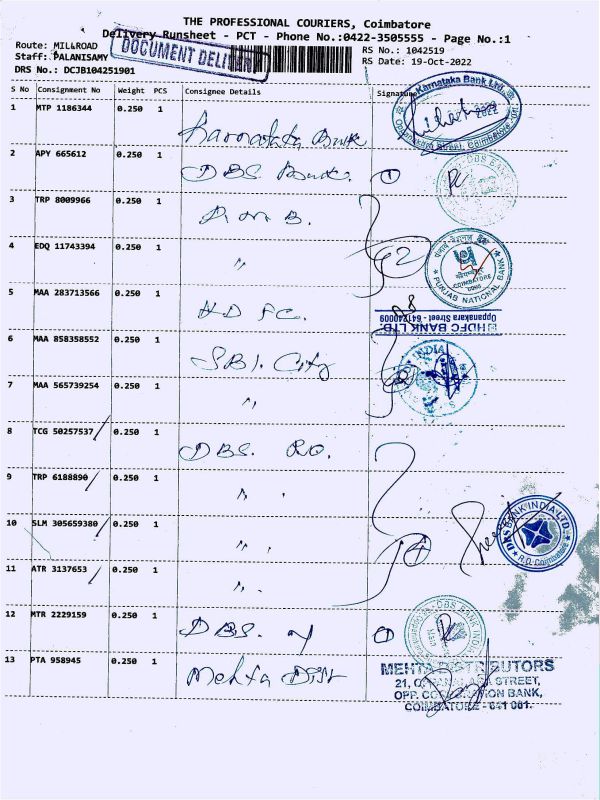 THE PROFESSIONAL COURIERS, Coimbatore
Delivery Runsheet - PCT - Phone No.:0422-3505555 - Page No.:1
Route: MILLROAD
RS No.: 1042519
Staff: PALANISAMY
DOCUMENT DELIVERY
RS Date: 19-Oct-2022
DRS No.: DCJB104251901
S No Consignment No Weight PCS Consignee Details Signature
1 MTP 1186344 0.250 1 Karnataka Bank
Karnataka Bank Ltd.
Street, Coimbatore
2 APY 665612 0.250 1 DBS Bank. 1
DBS BANK
3 TRP 8009966 0.250 1 P N B.
4 EDQ 11743394 0.250 1 " 2
पंजाब नैशनल बैंक
COIMBATORE
PUNJAB NATIONAL BANK
5 MAA 283713566 0.250 1 HDFC.
HDFC BANK LTD.
Oppanakara Street - 641240009
6 MAA 858358552 0.250 1 SBI. City
INDIA
7 MAA 565739254 0.250 1 "
8 TCG 50257537 0.250 1 DBS. RO.
9 TRP 6188890 0.250 1 "
10 SLM 305659380 0.250 1 "
DBS BANK INDIA LTD.
R.O. Coimbatore
11 ATR 3137653 0.250 1 " 4
12 MTR 2229159 0.250 1 DBS. 1
DBS BANK INDIA
13 PTA 958945 0.250 1 Mehta Dist
MEHTA DISTRIBUTORS
21, STREET,
OPP. CORPORATION BANK,
COIMBATORE - 641 001.